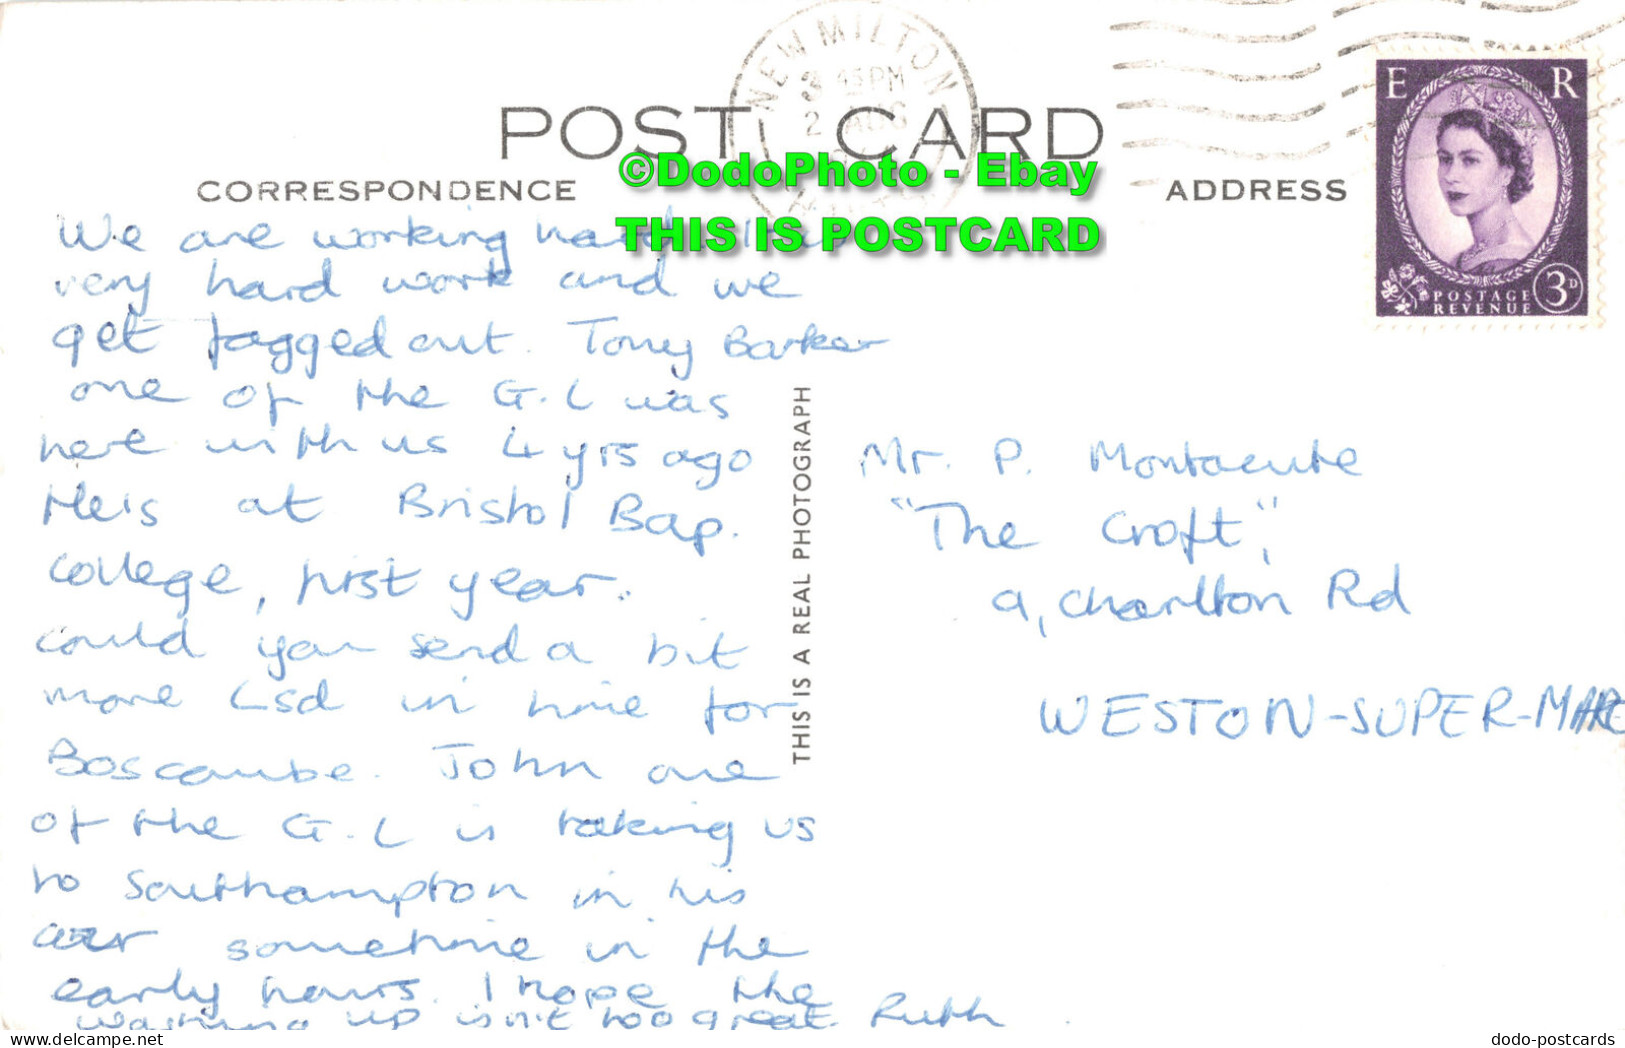 NEW MILTON
3 45 PM
2 AUG
POST CARD
©DodoPhoto - Ebay
THIS IS POSTCARD
CORRESPONDENCE
ADDRESS
E R
POSTAGE
REVENUE
3D
We are working hard
very hard work and we
get fagged out. Tony Barker
one of the G.L was
here with us 4 yrs ago
He is at Bristol Bap.
College, first year.
Could you send a bit
more Lsd in time for
Boscombe. John one
of the G.L is taking us
to Southampton in his
car sometime in the
early hours. I hope the
washing up isn't too great. Ruth
THIS IS A REAL PHOTOGRAPH
Mr. P. Montacute
"The Croft",
9, Charlton Rd
WESTON-SUPER-MARE
dodo-postcards
www.delcampe.net